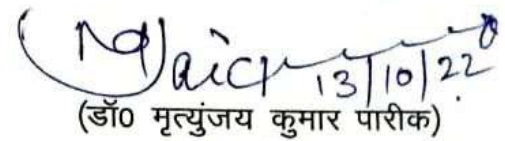 13/10/22
(डॉ0 मृत्युंजय कुमार पारीक)